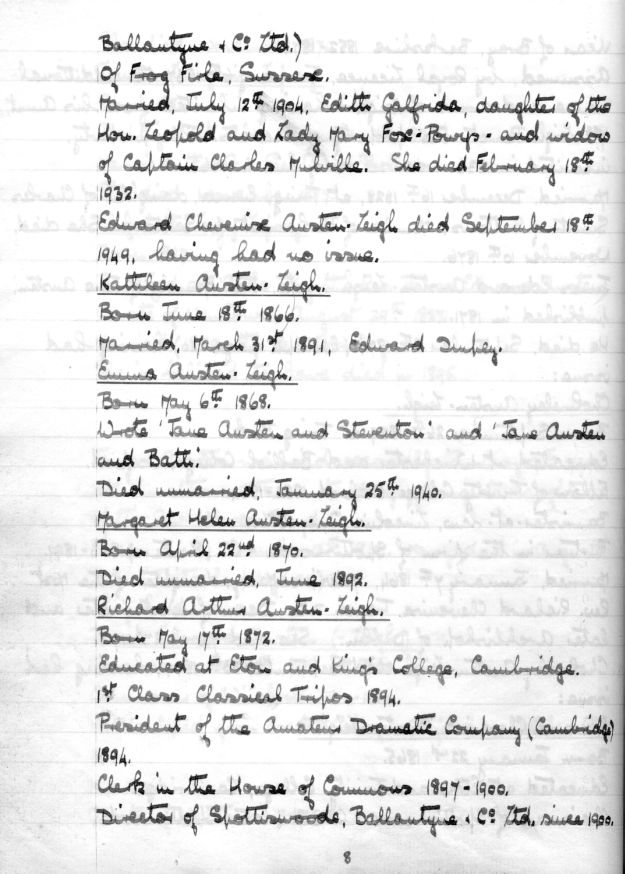 Ballantyne & Co Ltd.)
Of Frog Firle, Sussex.
Married, July 12th 1904, Edith Galfrida, daughter of the
Hon. Leopold and Lady Mary Fox-Powys - and widow
of Captain Charles Melville. She died February 18th
1932.
Edward Chevenix Austen-Leigh died September 18th
1949, having had no issue.
Kathleen Austen-Leigh.
Born June 18th 1866.
Married, March 31st 1891, Edward Impey.
Emma Austen-Leigh.
Born May 6th 1868.
Wrote 'Jane Austen and Steventon' and 'Jane Austen
and Bath'.
Died unmarried, January 25th 1940.
Margaret Helen Austen-Leigh.
Born April 22nd 1870.
Died unmarried, June 1892.
Richard Arthur Austen-Leigh.
Born May 17th 1872.
Educated at Eton and King's College, Cambridge.
1st Class Classical Tripos 1894.
President of the Amateur Dramatic Company (Cambridge)
1894.
Clerk in the House of Commons 1897-1900.
Director of Spottiswoode, Ballantyne & Co Ltd. since 1900.
8